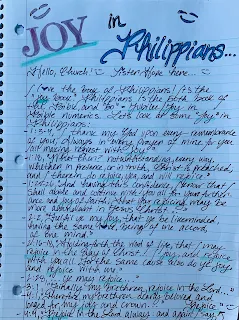 JOY in
Philippians...
Hello, Church! Sister Hope here
I love the book of Philippians! It's the
"Joy book." Philippians is the 50th book of
the Bible, and 50 = Jubilee/Joy in
Bible numerics. Let's look at some "Joy" in
Philippians:
1:3-4, I thank my God upon every remembrance
of you, Always in every prayer of mine for you
all making request with Joy."
1:18, What then? notwithstanding, every way,
whether in pretence, or in truth, Christ is preached,
and I therein do rejoice, yea, and will rejoice."
1:25-26, And having this confidence, I know that I
shall abide and continue with you all for your further-
ance and joy of faith; That your rejoicing may be
more abundant in Jesus Christ
2:2, Fulfil ye my joy, that ye be likeminded,
having the same love, being of one accord,
of one mind"
2:16-18, Holding forth the word of life; that I may
rejoice in the day of Christ I joy, and rejoice
with you all. For the same cause also do ye joy,
and rejoice with me"
ye may rejoice
3:1, Finally, my brethren, rejoice in the Lord.
4:1, Therefore, my brethren dearly beloved and
longed for, my joy and crown
4:4, Rejoice in the Lord alway: and again I say,
Rejoice."